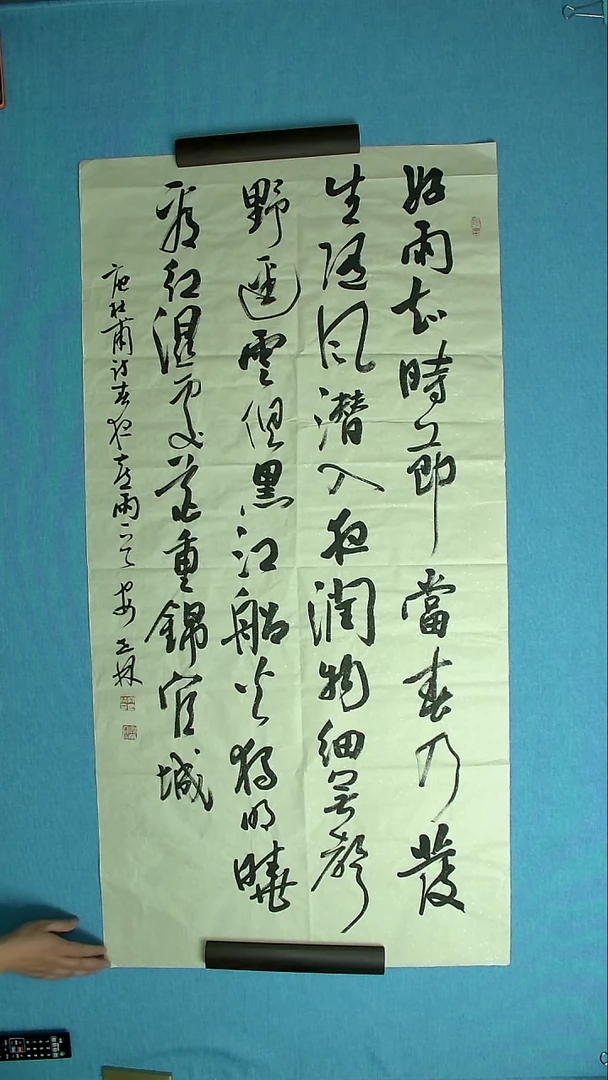 好雨知時節當春乃發
生随风潜入夜潤物細無聲
野逕雲俱黑江船火獨明曉
看紅濕處花重錦官城
唐杜甫诗春夜喜雨一首